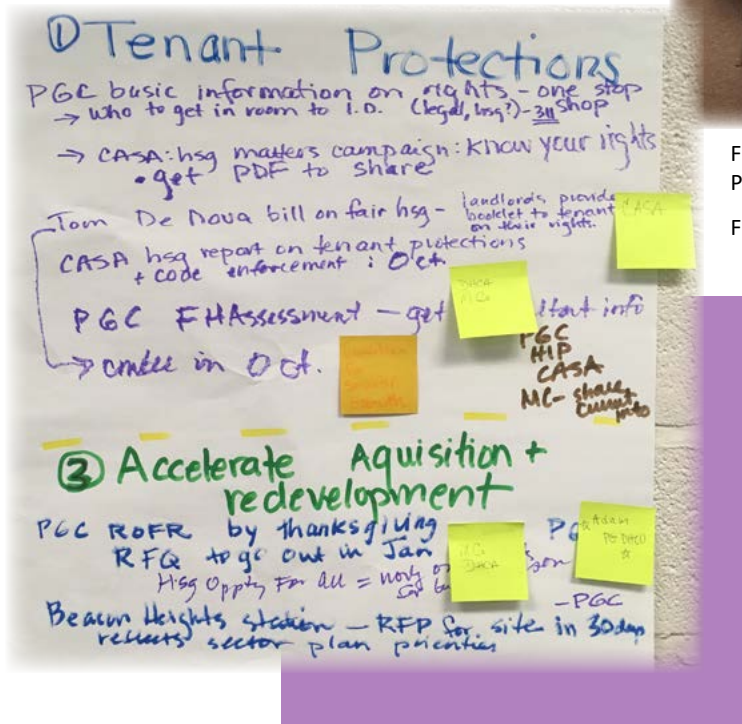 ① Tenant Protections
PGC basic information on rights - one stop
→ who to get in room to I.D. (legal, hsg?) - 311 shop
→ CASA: hsg matters campaign: Know your rights
• get PDF to share
Tom De Nova bill on fair hsg - landlords provide
booklet to tenant
on their rights.
CASA
CASA hsg report on tenant protections
+ code enforcement : Oct.
DHCA
MCo
PGC FHAssessment - get info
→ cmtee in Oct.
PGC
HIP
CASA
MC - share
current
info
③ Accelerate Aquisition +
redevelopment
PGC ROFR by thanksgiving
RFQ to go out in Jan
MCo
DHCA
Adam
PG DHCD
Hsg Oppty For All =
- PGC
Beacon Heights station - RFP for site in 30 days
reflects sector plan priorities
F
P
F